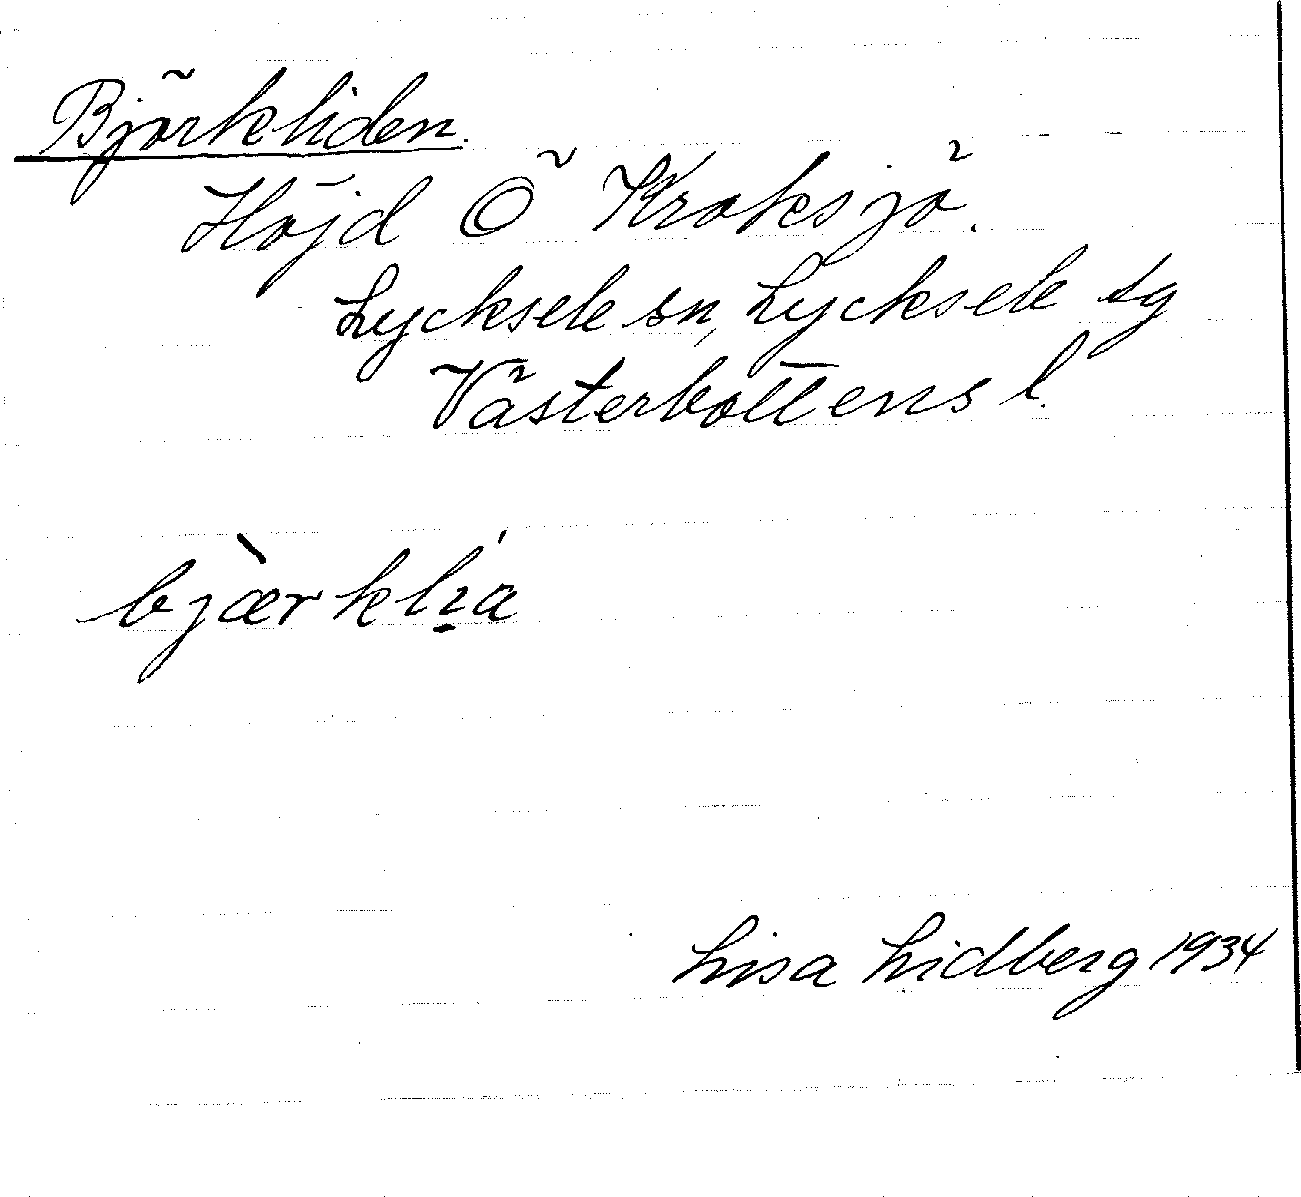 Björkliden.
Höjd Ö Kroksjö.
Lycksele sn, Lycksele tg
Västerbottens l.
bjæ̀rklı̠́a
Lisa Lidberg 1934